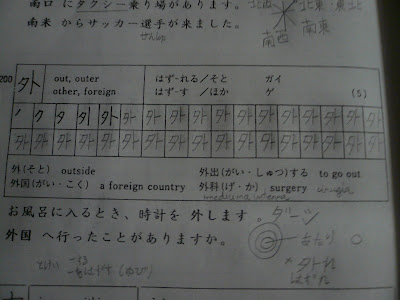 南口 にタクシー乗り場があります。
南米 からサッカー選手が来ました。
北西 北東・東北
南西 南東
200 外 out, outer
other, foreign
はず-れる/そと
はず-す /ほか
ガイ
ゲ
(5)
ノ ク タ 外 外 外 外 外 外 外 外 外 外 外
外 外 外 外 外 外 外 外 外 外 外 外 外 外
外(そと) outside 外出(がい・しゅつ)する to go out
外国(がい・こく) a foreign country 外科(げ・か) surgery
medicina interna
お風呂に入るとき、時計を 外します 。
外国 へ行ったことがありますか。
ダーツ
あたり ○
× 外れ
はずれ
とけい